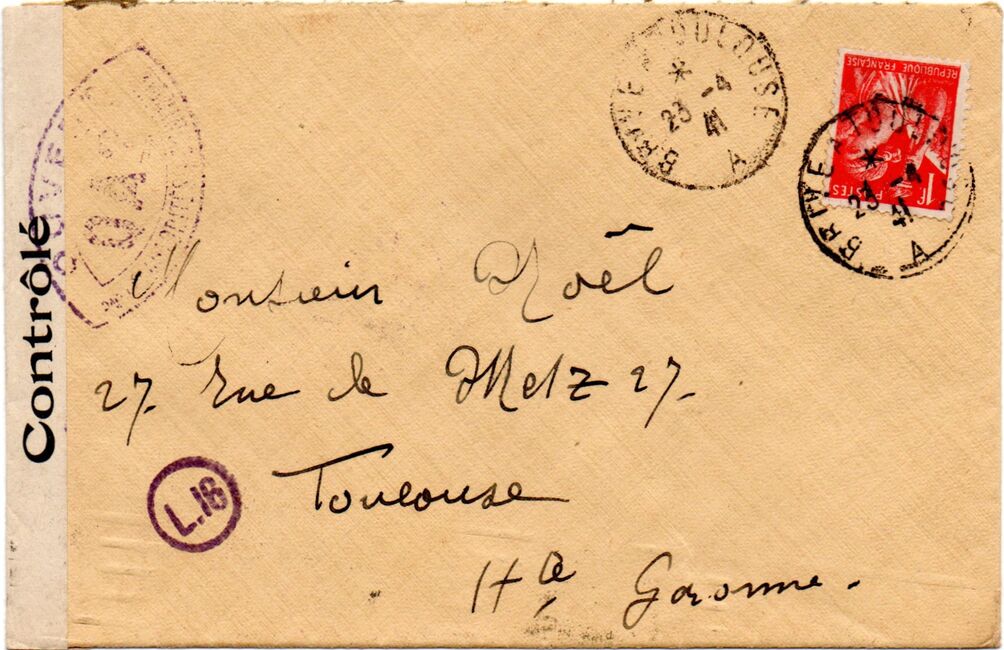 BRIVE A TOULOUSE
*
23 -4
41
A
REPUBLIQUE FRANÇAISE
POSTES
1F
BRIVE A TOULOUSE
*
23 -4
41
A
Contrôlé
OUVERT
Monsieur Noël
27. Rue de Metz 27.
Toulouse
L.16
Hte Garonne.